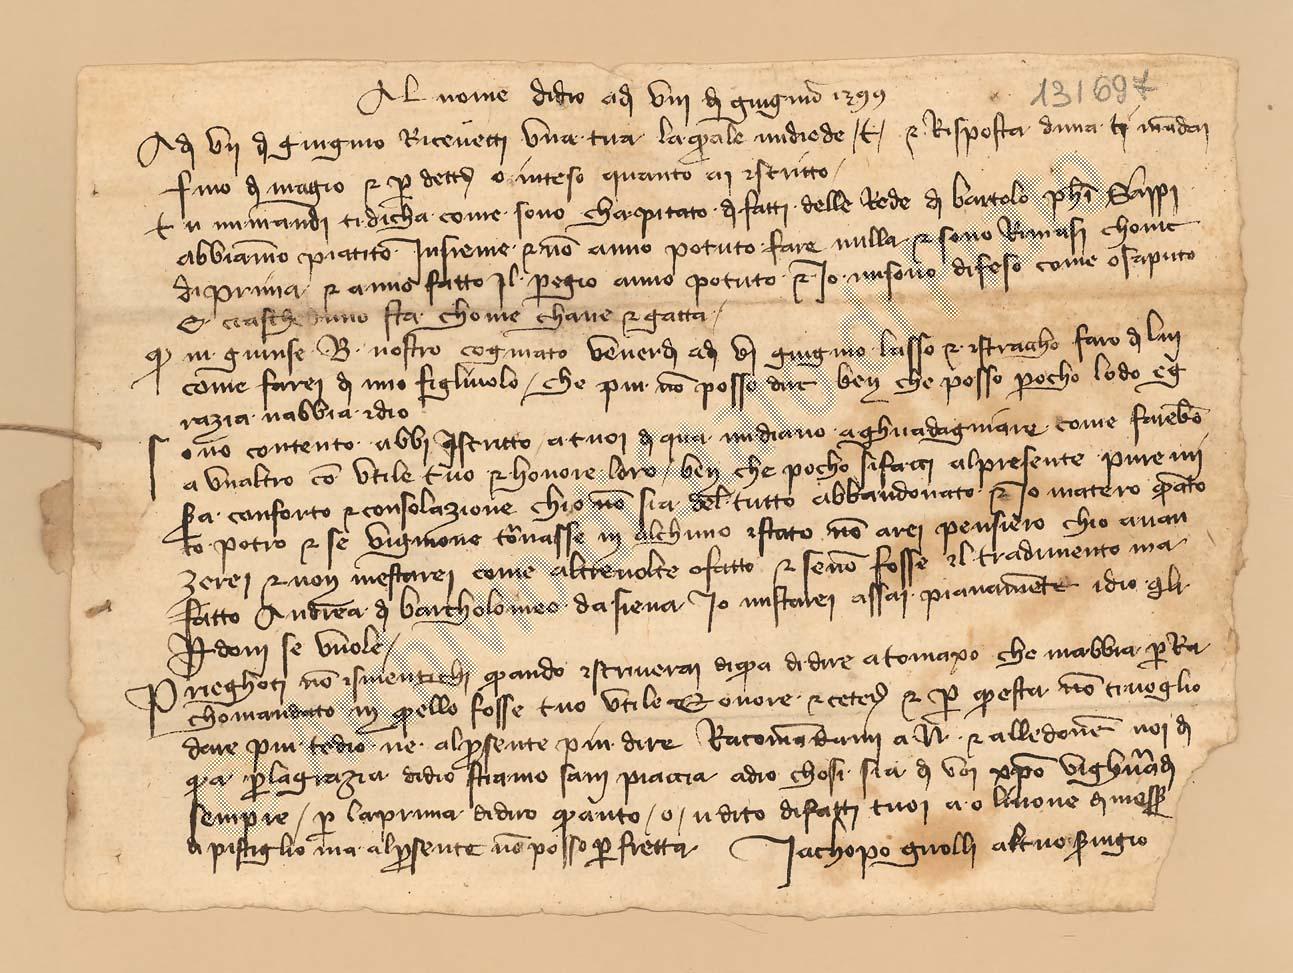 131697
Al nome didio ad viii di giugno 1399
Ad vii di giugno Ricevetti una tua la quale mi diede t. et Risposta duna ti mandai
fino di magio et p detta o inteso quanto ai iscritto
Tu mi mandi ti dicha come sono chapitato di fatti delle Rede di bartolo
abbiamo piatito Insieme et nō anno potuto fare nulla et sono Rimasi chome
di prima et anno fatto Il pegio anno potuto et Io mi sono difeso come o saputo
e ciascheduno sta chome chane et gatta
Qui giunse B. nostro cognato venerdi adi vi giugno lasso et istracho faro di lui
come farei di mio figliuolo che piu nō posso dire ben che posso pocho lodo e g
razia nabbia idio
Sono contento abbi iscritto a tuoi di qua mi diano a ghuadagniare come farebō
a unaltro cō utile tuo et honore loro ben che pocho si facci al presente pure mi
sara conforto et consolazione chio nō sia del tutto abbandonato et Io matero quāto
to potro et se vignione tornasse in alchuno istato nō arei pensiero chio avan
zerei et non mi starei come altre volte o fatto et se nō fosse il tradimento ma
fatto Andrea di bartholomeo da siena Io mi starei assai pianamente idio gli
perdoni se vuole
Prieghoti nō ismentichi quando iscriverai di qua di dire a tomaxo che mabbia p Ra
chomandato in quello fosse tuo utile e onore et cetera et p questa nō ti voglio
dare piu tedio ne al psente piu dire Racomandami a et alle donne noi di
qua p la grazia didio stiamo sani piaccia a dio chosi sia di voi xpo vi ghuardi
sempre p la prima ti diro quanto o udito di fatti tuoi a
a pistiglio ma al psente nō posso p fretta Jachopo al tuo svigio